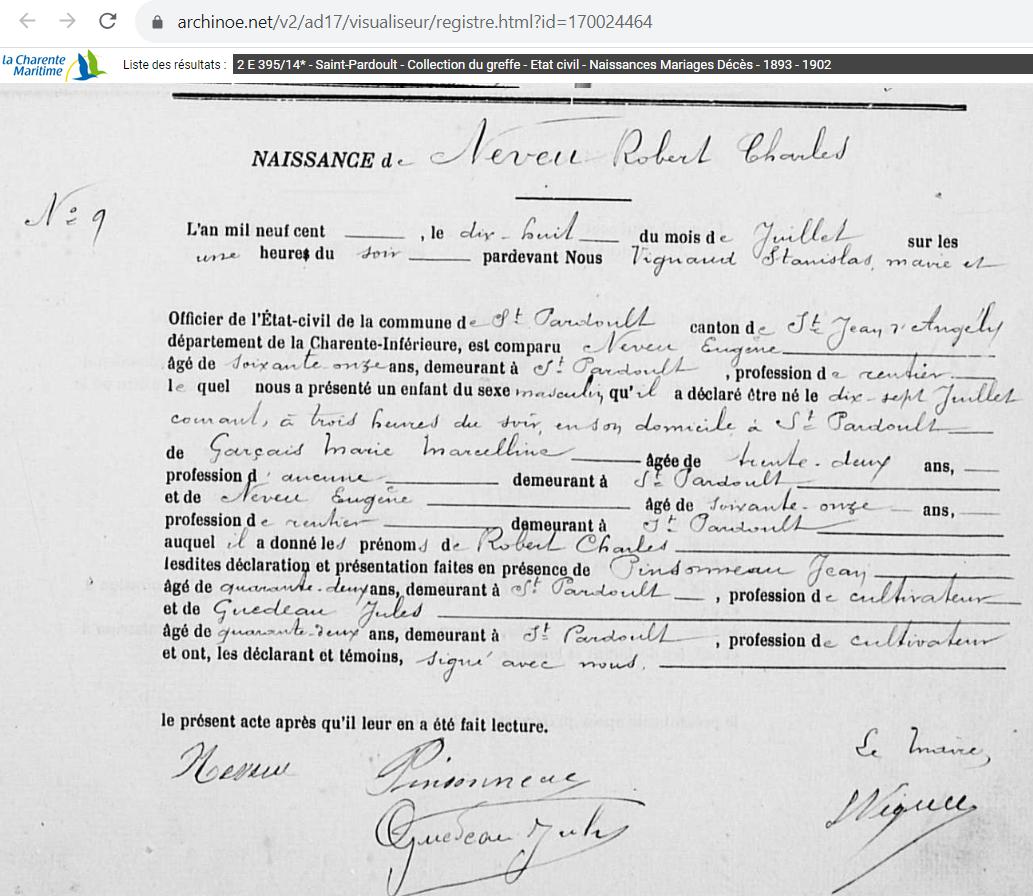 archinoe.net/v2/ad17/visualiseur/registre.html?id=170024464
la Charente
Maritime
Liste des résultats : 2 E 395/14* - Saint-Pardoult - Collection du greffe - Etat civil - Naissances Mariages Décès - 1893 - 1902
NAISSANCE de Neveu Robert Charles
N° 9
L'an mil neuf cent , le dix-huit du mois de Juillet sur les
une heures du soir pardevant Nous Vignaud Stanislas, maire et
Officier de l'État-civil de la commune de St Pardoult canton de St Jean d'Angély
département de la Charente-Inférieure, est comparu Neveu Eugène
âgé de soixante onze ans, demeurant à St Pardoult , profession de rentier
le quel nous a présenté un enfant du sexe masculin qu'il a déclaré être né le dix-sept Juillet
courant, à trois heures du soir, en son domicile à St Pardoult
de Garçais Marie Marcelline âgée de trente-deux ans,
profession d'aucune demeurant à St Pardoult
et de Neveu Eugène âgé de soixante-onze ans,
profession de rentier demeurant à St Pardoult
auquel il a donné les prénoms de Robert Charles
lesdites déclaration et présentation faites en présence de Pinsonneau Jean
âgé de quarante-deux ans, demeurant à St Pardoult , profession de cultivateur
et de Guedeau Jules
âgé de quarante-deux ans, demeurant à St Pardoult , profession de cultivateur
et ont, les déclarant et témoins, signé avec nous.
le présent acte après qu'il leur en a été fait lecture.
Le Maire,
Neveu Pinsonneau
Guedeau Jules